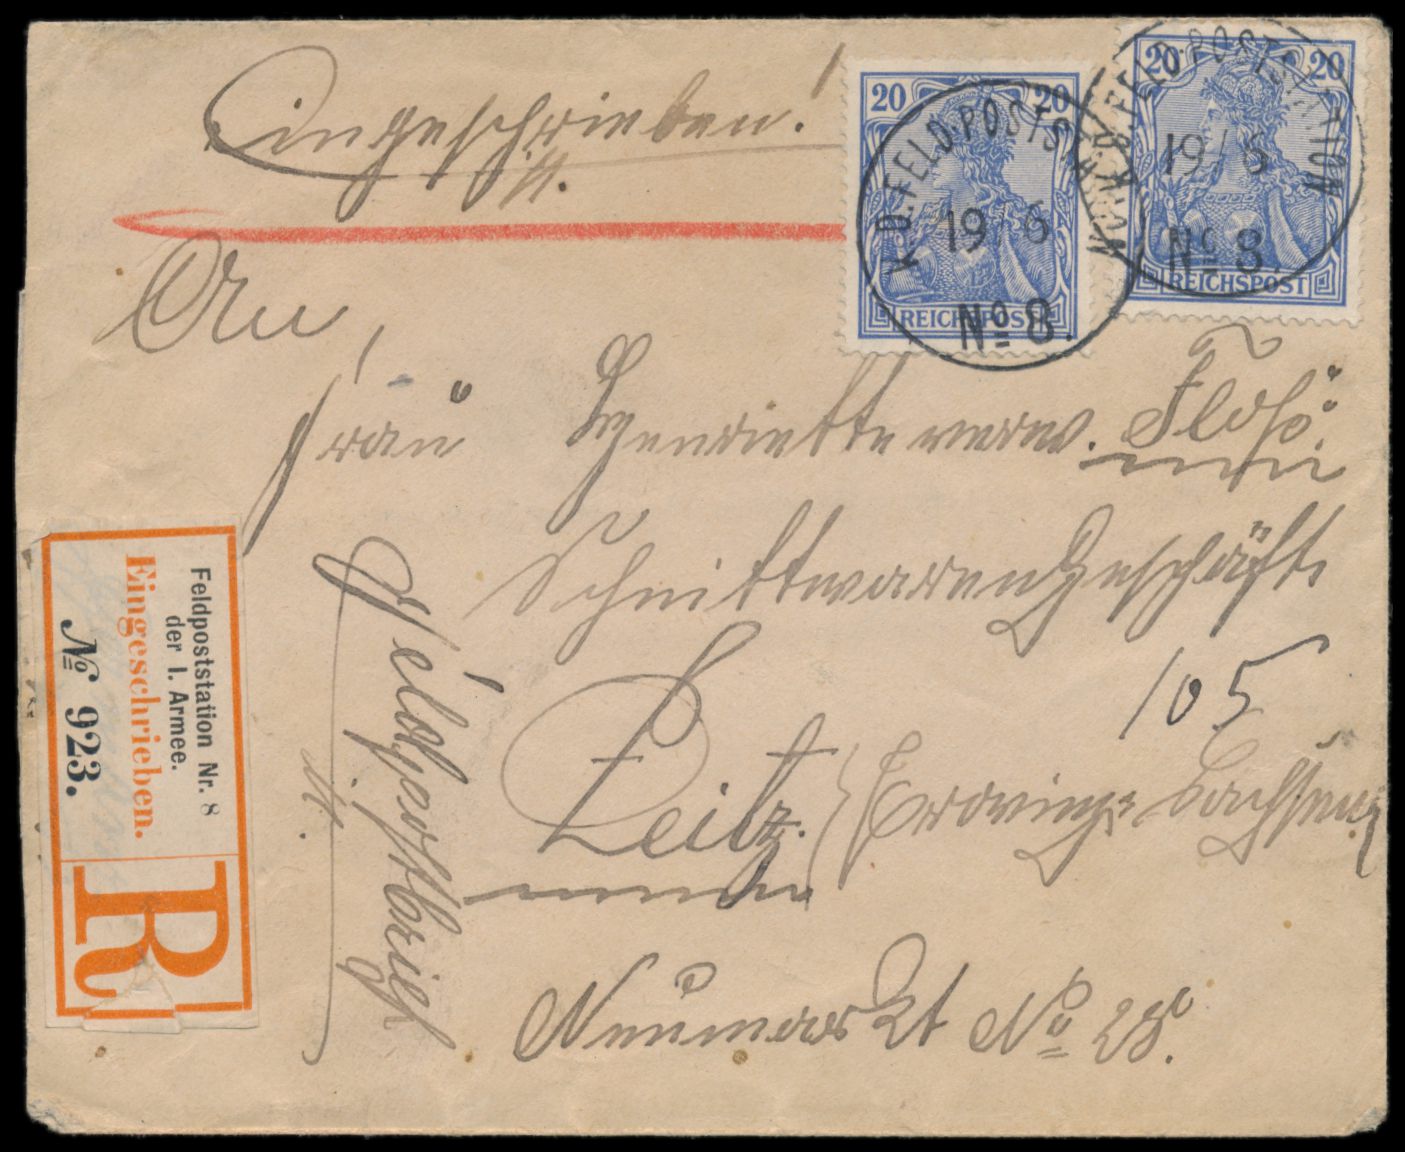 Eingeschrieben!
20 20
REICHSPOST
K.D. FELD-POSTSTATION
19/6
No 8.
20 20
REICHSPOST
K.D. FELD-POSTSTATION
19/6
No 8.
An
Frau Henriette verw.
Schnittwarengeschäft
105
Zeitz. (Provinz Sachsen)
Neumarkt No 28.
Feldpostbrief
Feldpoststation Nr. 8
der I. Armee.
Eingeschrieben.
No 923.
R